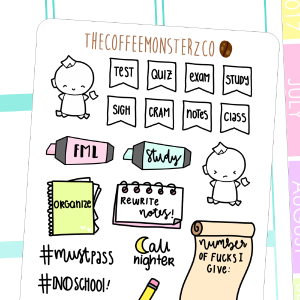 THECOFFEEMONSTERZCO
TEST QUIZ EXAM STUDY
SIGH CRAM NOTES CLASS
FML Study
ORGANIZE
REWRITE
NOTES!
Cali
nighter
NUMBER
OF FUCKS I
GIVE:
#MUSTPASS
#INOSCHOOL!
JULY
AUGUST